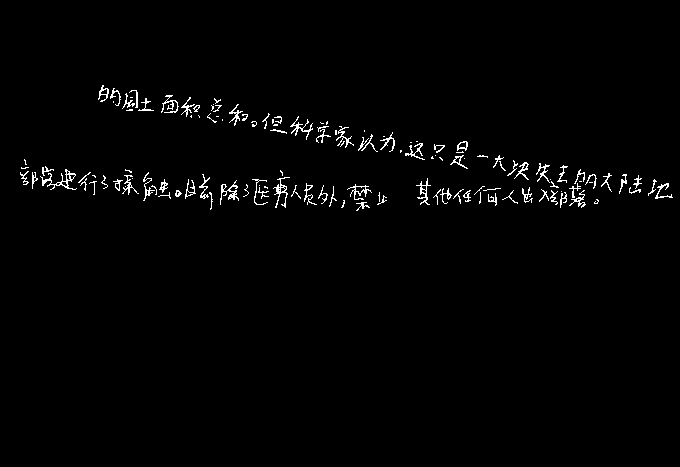 的国土面积总和。但科学家认为,这只是一大块失去的大陆地
部落进行了接触。目前除了医疗人员外,禁止 其他任何人出入部落。